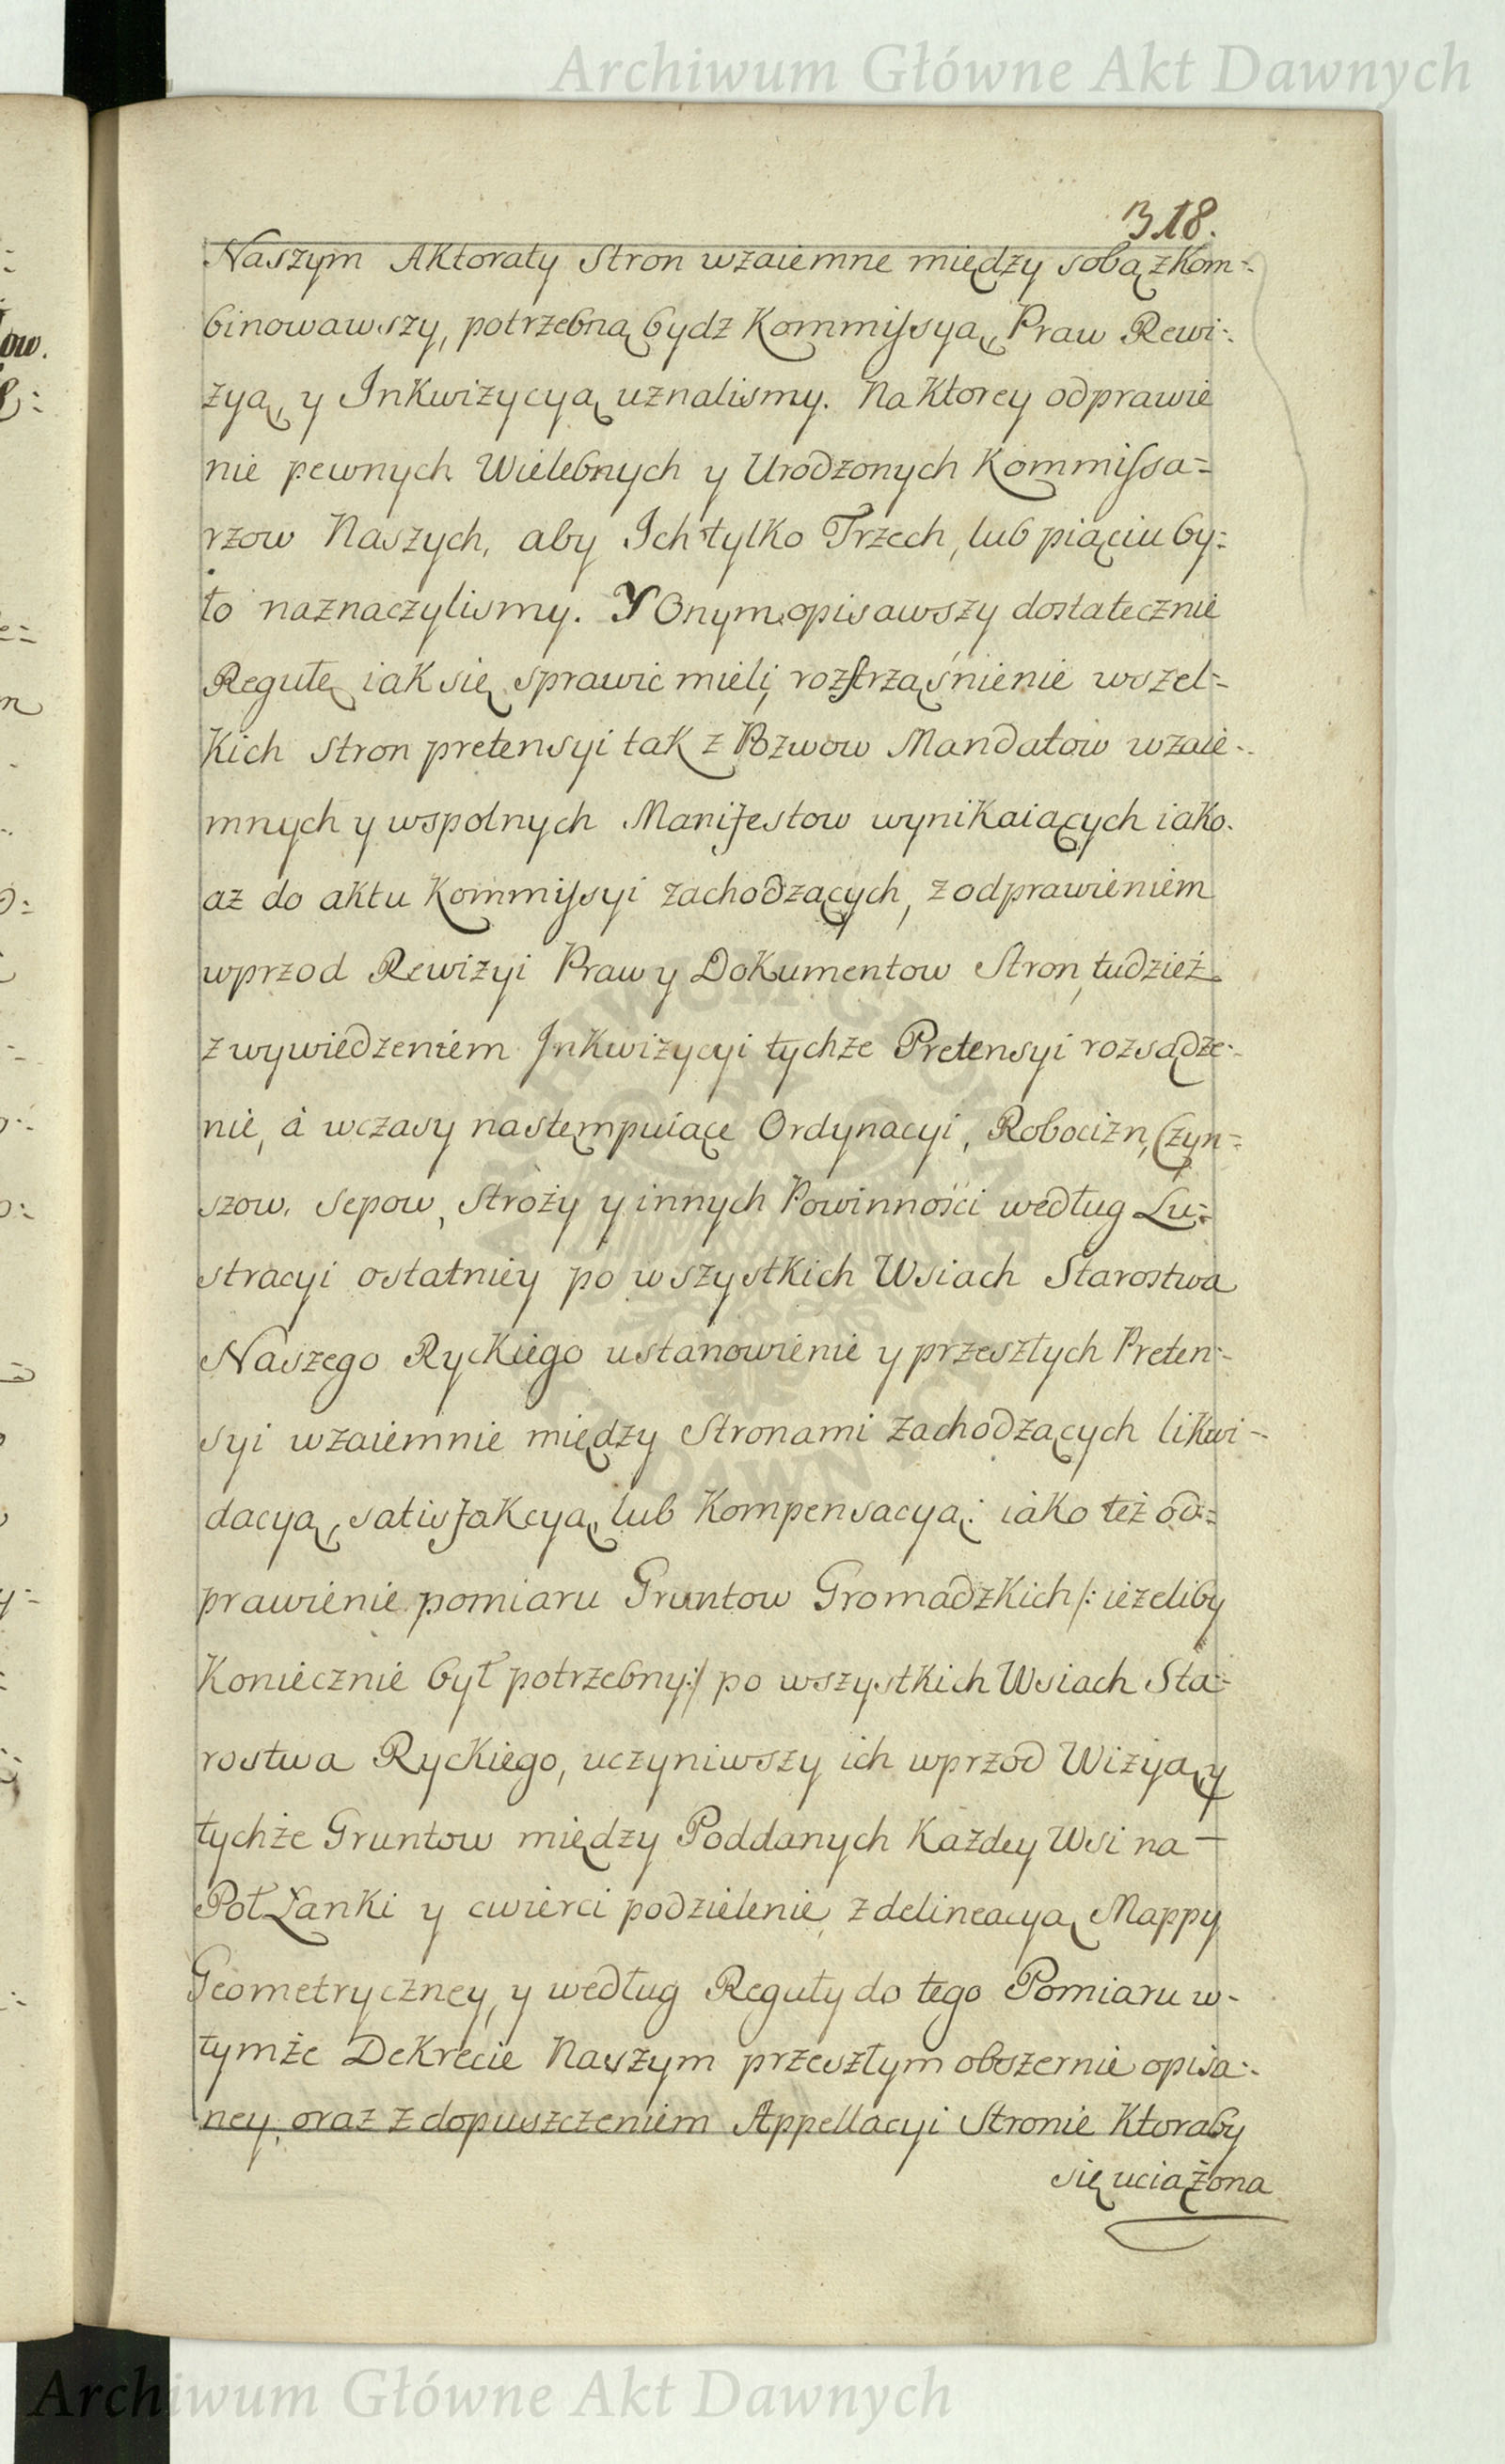 Archiwum Główne Akt Dawnych
318.
Naszym Aktoraty Stron wzaiemne między sobą zkom-
binowawszy, potrzebną bydz Kommissyą, Praw Rewi:
zyą, y Inkwizycyą uznalismy. Na Ktorey odprawie
nie pewnych Wielebnych y Urodzonych Kommissa=
rzow Naszych, aby Ich tylko Trzech, lub piąciu by:
ło naznaczylismy. Y Onym opisawszy dostatecznie
Regułę iak się sprawic mieli, rozstrząśnienie wszel=
kich Stron pretensyi tak z Pozwow Mandatow wzaie-
mnych y wspolnych Manifestow wynikaiących iako
az do aktu Kommissyi zachodzących, z odprawieniem
wprzod Rewizyi Praw y Dokumentow Stron, tudzież
z wywiedzeniem Inkwizycyi tychze Pretensyi rozsądze-
nie, á wczasy nastempuiące Ordynacyi, Robocizn, Czyn=
szow, Sepow, Stroży y innych Powinności według Lu=
stracyi ostatniey po wszystkich Wsiach Starostwa
Naszego Ryckiego ustanowienie y przeszłych Preten-
syi wzaiemnie między Stronami zachodzących likwi-
dacyą, satisfakcyą, lub Kompensacyą: iako też od=
prawienie pomiaru Gruntow Gromadzkich /: ieżeliby
Koniecznie był potrzebny :/ po wszystkich Wsiach Sta=
rostwa Ryckiego, uczyniwszy ich wprzod Wizyą, y
tychże Gruntow między Poddanych Każdey Wsi na -
Poł Łanki y cwierci podzielenie, z delineacyą Mappy
Geometryczney, y według Reguły do tego Pomiaru w-
tymże Dekrecie Naszym przeszłym obszernie opisa-
ney, oraz z dopuszczeniem Appellacyi Stronie Ktoraby
się uciążona
ARCHIWUM GŁÓWNE AKT DAWNYCH
Archiwum Główne Akt Dawnych